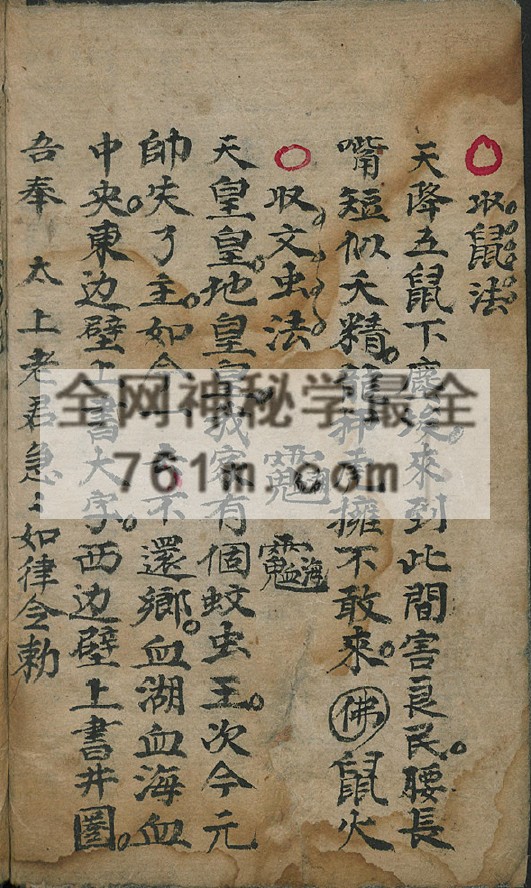 收鼠法
天降五鼠下塵埃來到此間害良民腰長
嘴短似夭精 擁不敢來佛鼠火
收文虫法
天皇皇地皇皇我家有個蚊虫王次今元
帥失了主如今 不還鄉血湖血海血
中央東边壁上書大字西边壁上書井圈
吾奉太上老君急〻如律令勅
全网神秘学最全
761m.com